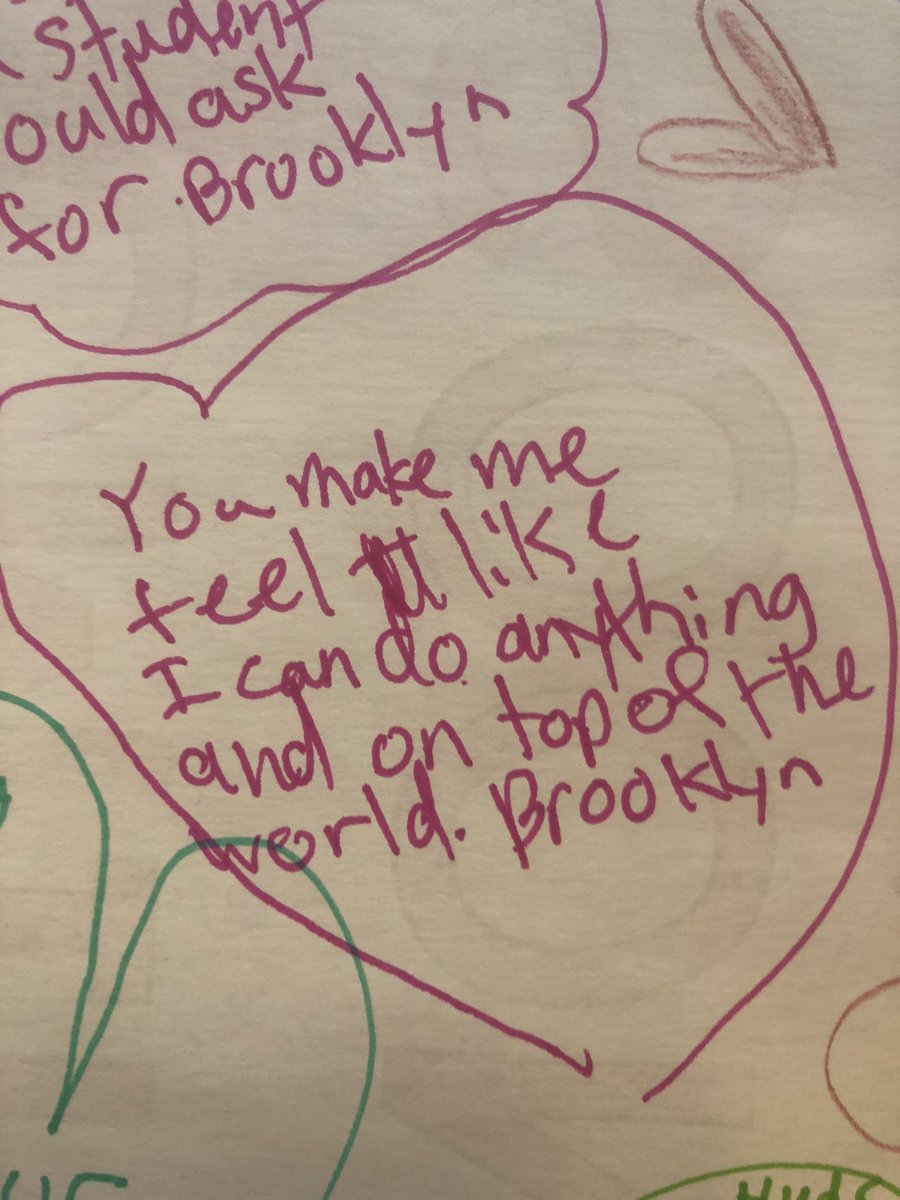 student
ould ask
for Brooklyn
You make me
feel like
I can do anything
and on top of the
world. Brooklyn